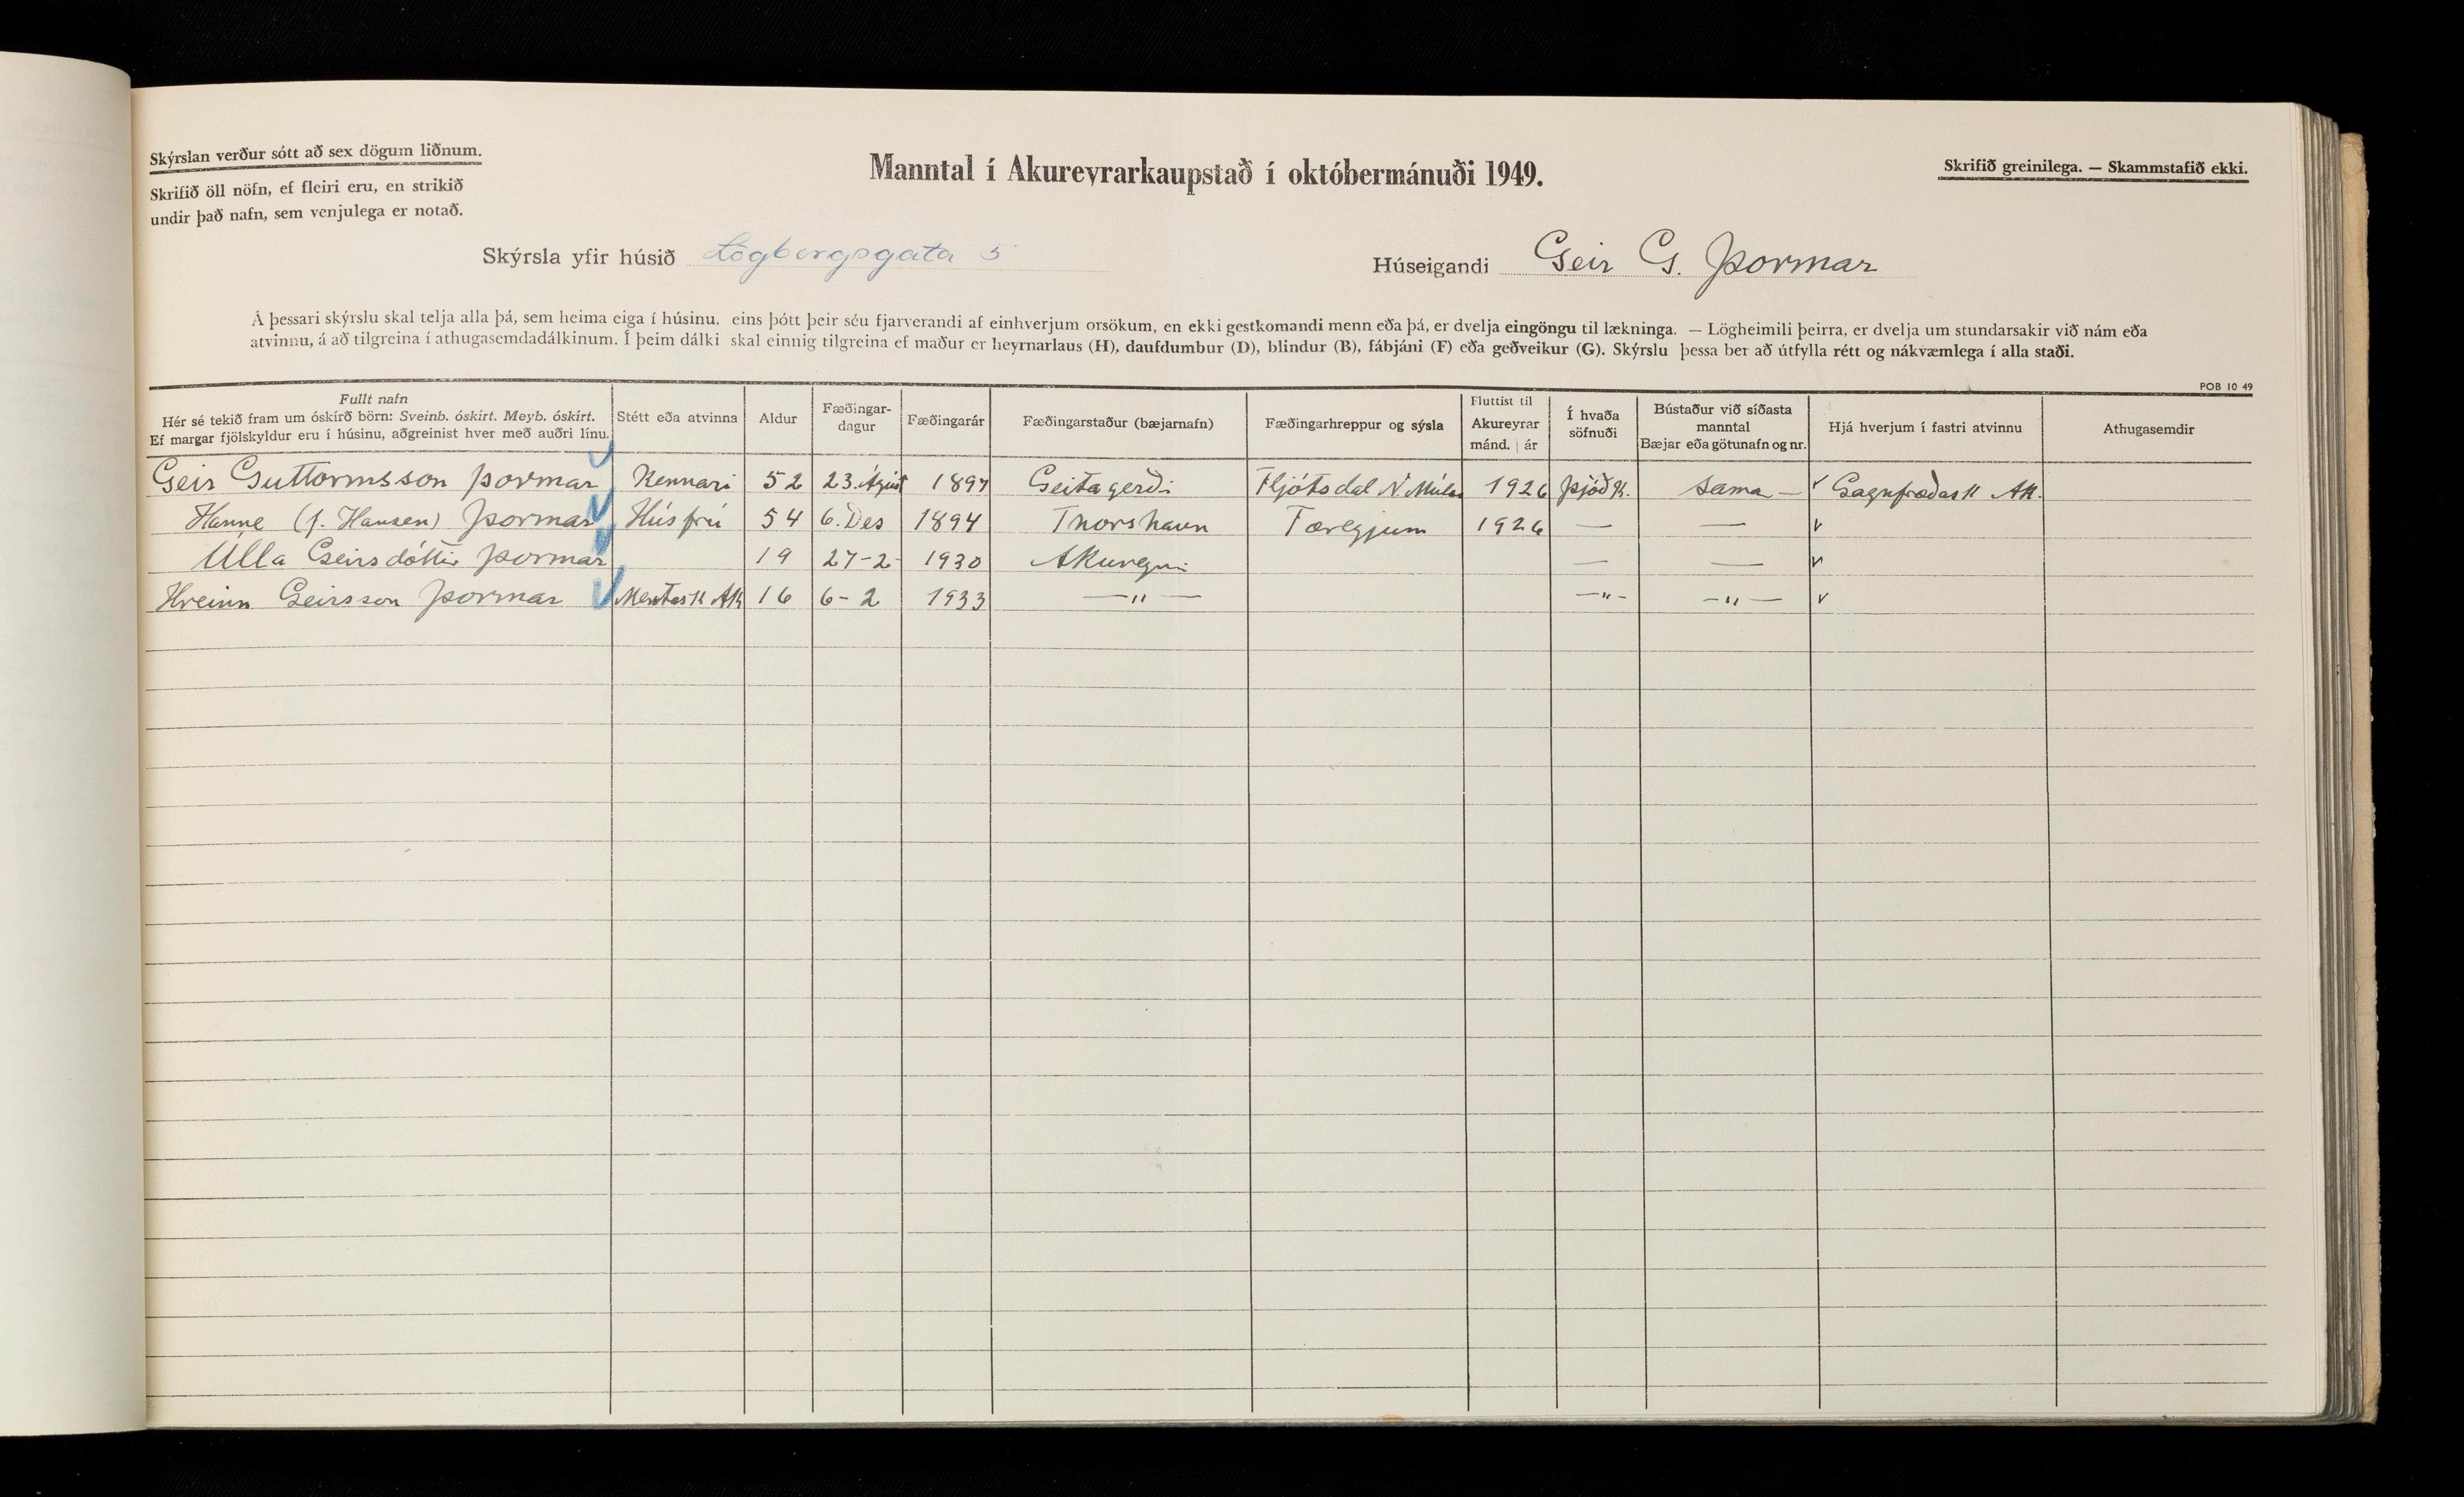 Skýrslan verður sótt að sex dögum liðnum.
Skrifið öll nöfn, ef fleiri eru, en strikið
undir það nafn, sem venjulega er notað.
Manntal í Akureyrarkaupstað í októbermánuði 1949.
Skrifið greinilega. — Skammstafið ekki.
Skýrsla yfir húsið Lögbergsgata 5
Húseigandi Geir G. Þormar
Á þessari skýrslu skal telja alla þá, sem heima eiga í húsinu, eins þótt þeir séu fjarverandi af einhverjum orsökum, en ekki gestkomandi menn eða þá, er dvelja eingöngu til lækninga. — Lögheimili þeirra, er dvelja um stundarsakir við nám eða
atvinnu, á að tilgreina í athugasemdadálkinum. Í þeim dálki skal einnig tilgreina ef maður er heyrnarlaus (H), daufdumbur (D), blindur (B), fábjáni (F) eða geðveikur (G). Skýrslu þessa ber að útfylla rétt og nákvæmlega í alla staði.
POB 10 49
Fullt nafn
Hér sé tekið fram um óskírð börn: Sveinb. óskírt. Meyb. óskírt.
Ef margar fjölskyldur eru í húsinu, aðgreinist hver með auðri línu.
Stétt eða atvinna
Aldur
Fæðingar-
dagur
Fæðingarár
Fæðingarstaður (bæjarnafn)
Fæðingarhreppur og sýsla
Fluttist til
Akureyrar
mánd. | ár
Í hvaða
söfnuði
Bústaður við síðasta
manntal
Bæjar eða götunafn og nr.
Hjá hverjum í fastri atvinnu
Athugasemdir
Geir Guttormsson Þormar Kennari 52 23. Ágúst 1897 Geitagerði Fljótsdal N. Múlas 1926 Þjóðk. Sama — Gagnfræðask Ak.
Hanne (f. Hansen) Þormar Húsfrú 54 6. Des 1894 Thorshavn Færeyjum 1926 — —
Úlla Geirsdóttir Þormar 19 27-2- 1930 Akureyri — —
Hreinn Geirsson Þormar Mentask Ak 16 6-2 1933 —"— —"— —"—